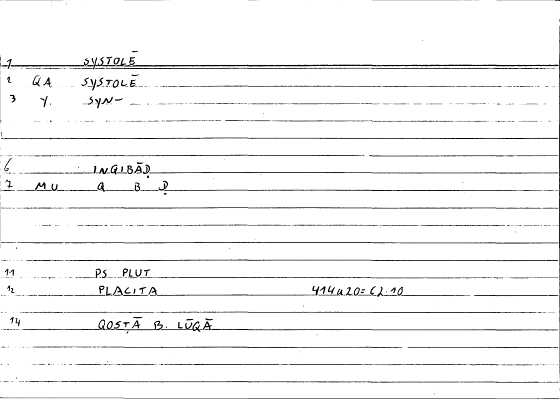 1 SYSTOLĒ
2 QA SYSTOLĒ
3 Y. SYN-
6 INGIBĀḌ
7 MU Q B Ḍ
11 PS PLUT
12 PLACITA 414u20=62.10
14 QOSṬĀ B. LŪQĀ